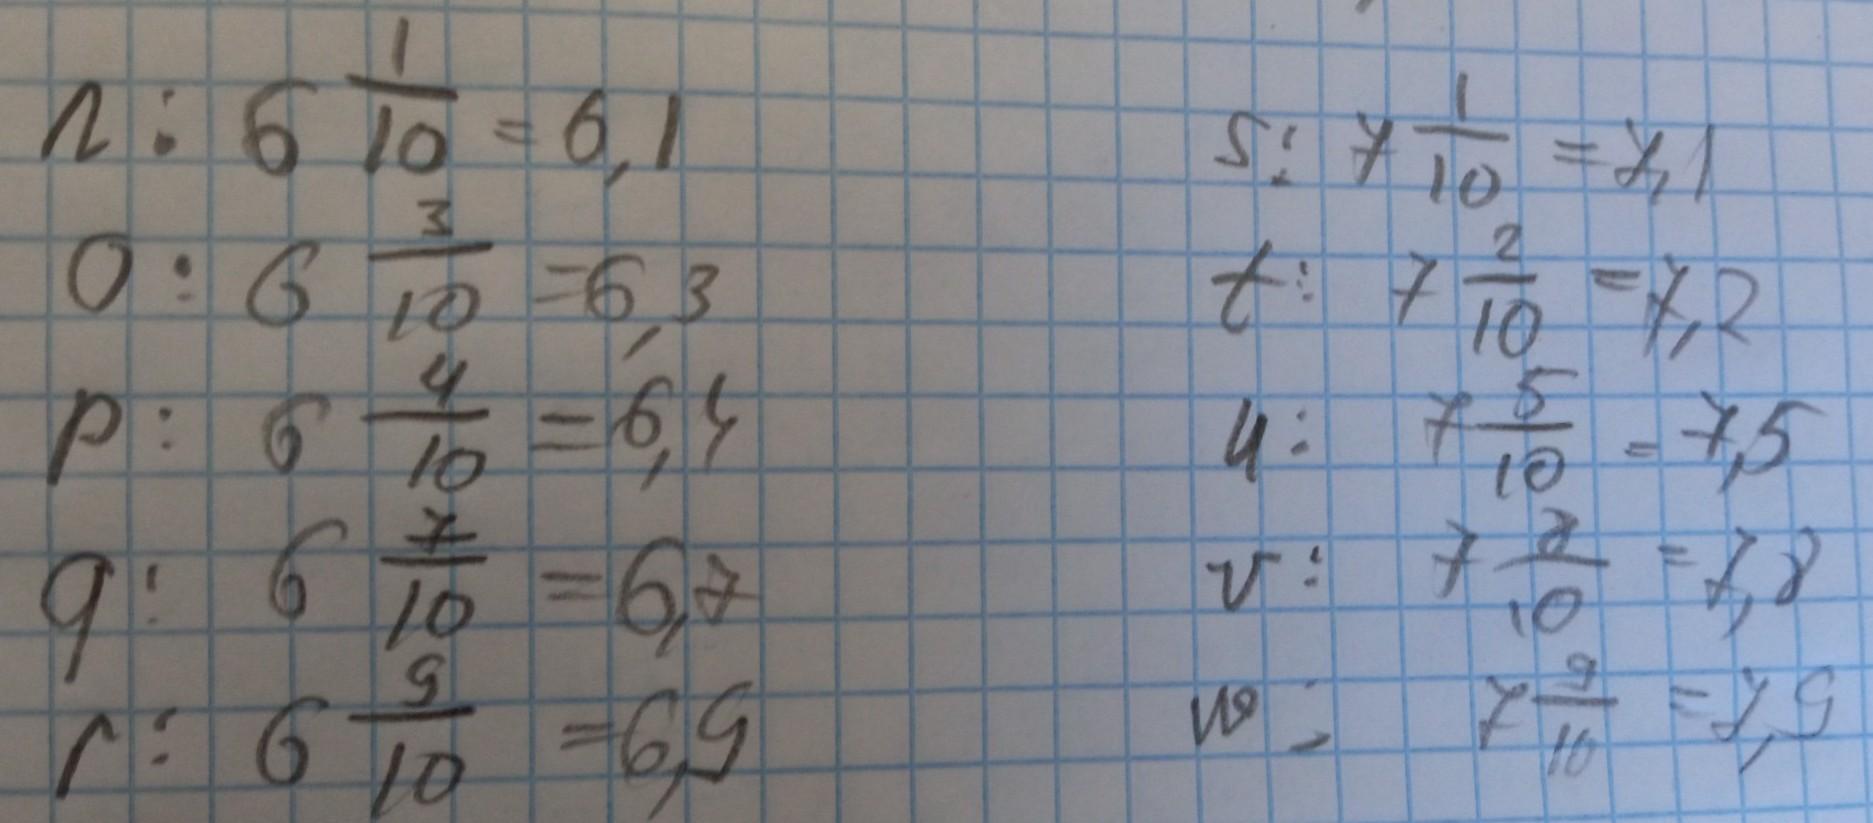 n: 6 1/10 = 6,1
o: 6 3/10 = 6,3
p: 6 4/10 = 6,4
q: 6 7/10 = 6,7
r: 6 9/10 = 6,9
s: 7 1/10 = 7,1
t: 7 2/10 = 7,2
u: 7 5/10 = 7,5
v: 7 8/10 = 7,8
w: 7 9/10 = 7,9